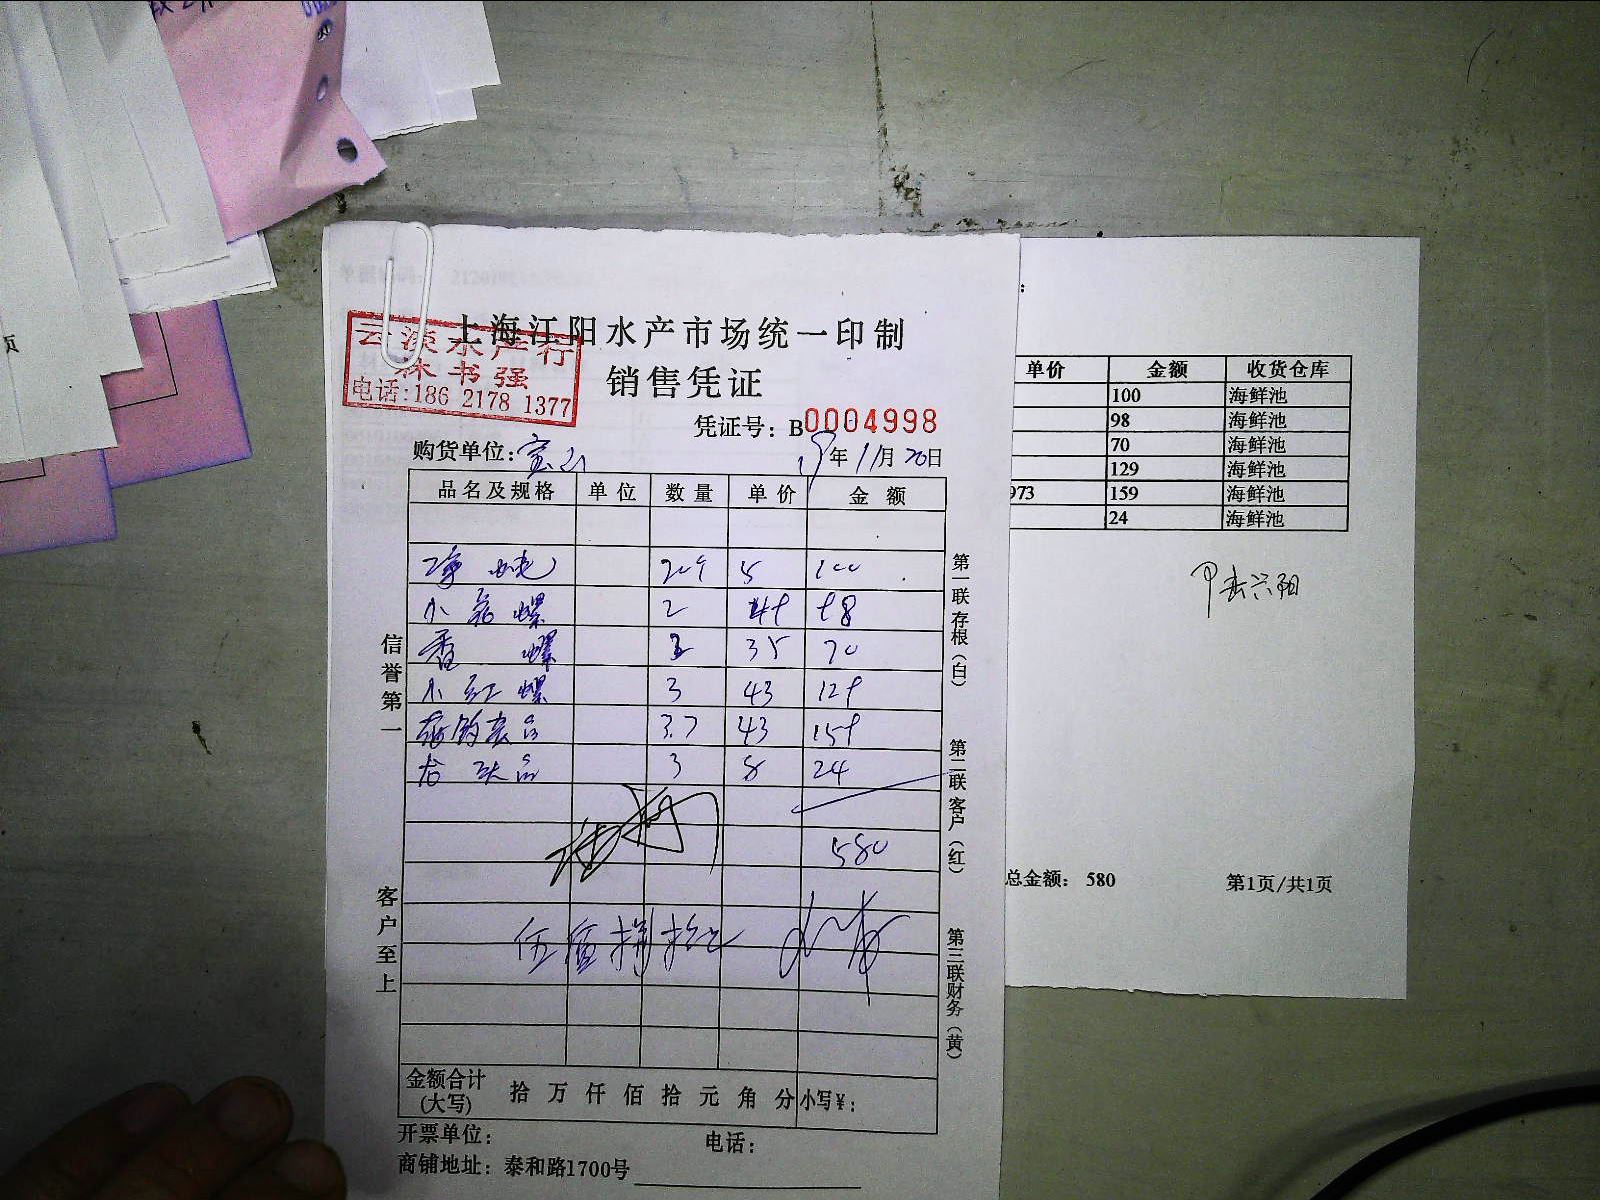 上海江阳水产市场统一印制
云淡水产行
林书强
电话:186 2178 1377
销售凭证
凭证号: B0004998
购货单位:宝山 19年11月20日
品名及规格 单位 数量 单价 金额
5 100
小 螺 2 49 98
香 螺 2 35 70
小红螺 3 43 129
3.7 43 159
3 8 24
580
伍佰捌拾元
金额合计(大写) 拾 万 仟 佰 拾 元 角 分 小写¥:
开票单位: 电话:
商铺地址: 泰和路1700号
信誉第一
客户至上
第一联存根(白)
第二联客户(红)
第三联财务(黄)
单价 金额 收货仓库
100 海鲜池
98 海鲜池
70 海鲜池
129 海鲜池
973 159 海鲜池
24 海鲜池
总金额: 580 第1页/共1页
页